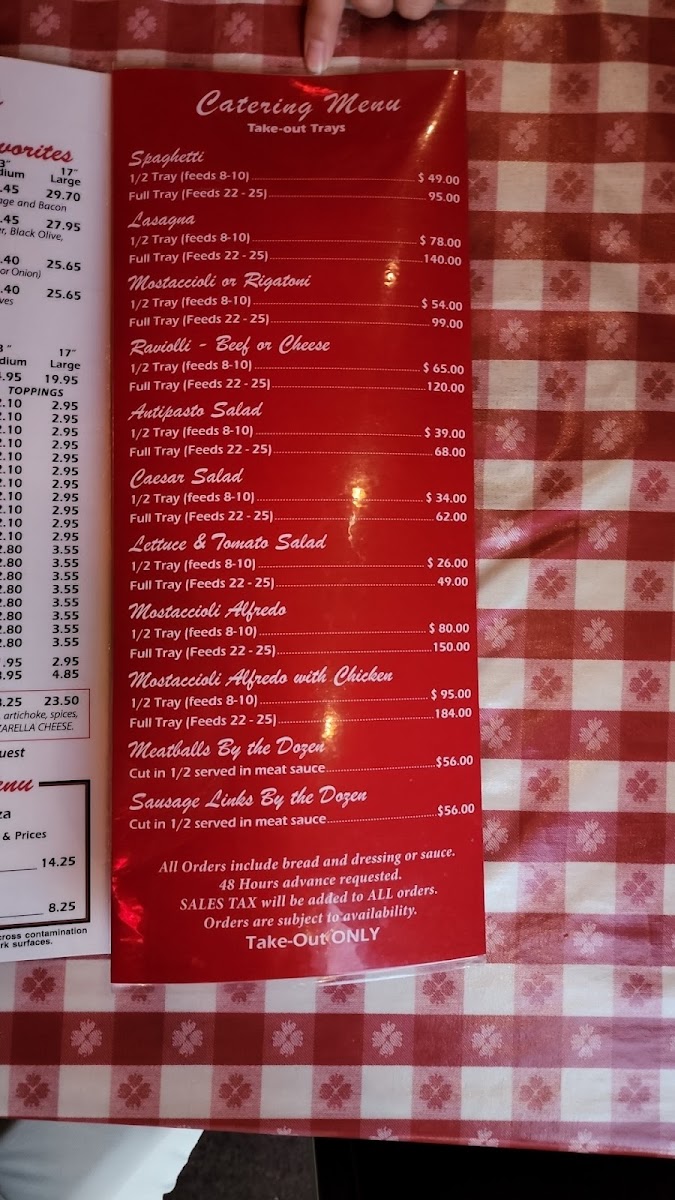 vorites
3" 17"
dium Large
.45 29.70
age and Bacon
.45 27.95
r, Black Olive,
.40 25.65
or Onion)
.40 25.65
ves
3" 17"
dium Large
.95 19.95
TOPPINGS
2.10 2.95
2.10 2.95
2.10 2.95
2.10 2.95
2.10 2.95
2.10 2.95
2.10 2.95
2.10 2.95
2.10 2.95
2.10 2.95
2.10 2.95
2.80 3.55
2.80 3.55
2.80 3.55
2.80 3.55
2.80 3.55
2.80 3.55
2.80 3.55
2.80 3.55
.95 2.95
3.95 4.85
3.25 23.50
, artichoke, spices,
ZARELLA CHEESE.
uest
enu
za
& Prices
14.25
8.25
cross contamination
rk surfaces.
Catering Menu
Take-out Trays
Spaghetti
1/2 Tray (feeds 8-10) $ 49.00
Full Tray (Feeds 22 - 25) 95.00
Lasagna
1/2 Tray (feeds 8-10) $ 78.00
Full Tray (Feeds 22 - 25) 140.00
Mostaccioli or Rigatoni
1/2 Tray (feeds 8-10) $ 54.00
Full Tray (Feeds 22 - 25) 99.00
Raviolli - Beef or Cheese
1/2 Tray (feeds 8-10) $ 65.00
Full Tray (Feeds 22 - 25) 120.00
Antipasto Salad
1/2 Tray (feeds 8-10) $ 39.00
Full Tray (Feeds 22 - 25) 68.00
Caesar Salad
1/2 Tray (feeds 8-10) $ 34.00
Full Tray (Feeds 22 - 25) 62.00
Lettuce & Tomato Salad
1/2 Tray (feeds 8-10) $ 26.00
Full Tray (Feeds 22 - 25) 49.00
Mostaccioli Alfredo
1/2 Tray (feeds 8-10) $ 80.00
Full Tray (Feeds 22 - 25) 150.00
Mostaccioli Alfredo with Chicken
1/2 Tray (feeds 8-10) $ 95.00
Full Tray (Feeds 22 - 25) 184.00
Meatballs By the Dozen
Cut in 1/2 served in meat sauce $56.00
Sausage Links By the Dozen
Cut in 1/2 served in meat sauce $56.00
All Orders include bread and dressing or sauce.
48 Hours advance requested.
SALES TAX will be added to ALL orders.
Orders are subject to availability.
Take-Out ONLY